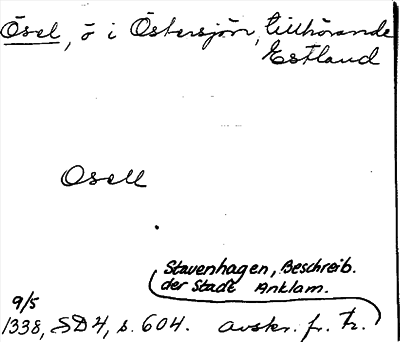 Ösel, ö i Östersjön, tillhörande
Estland
Osell
Stavenhagen, Beschreib.
der Stadt Anklam.
9/5
1338, SD 4, s. 604. avskr. fr. tr.